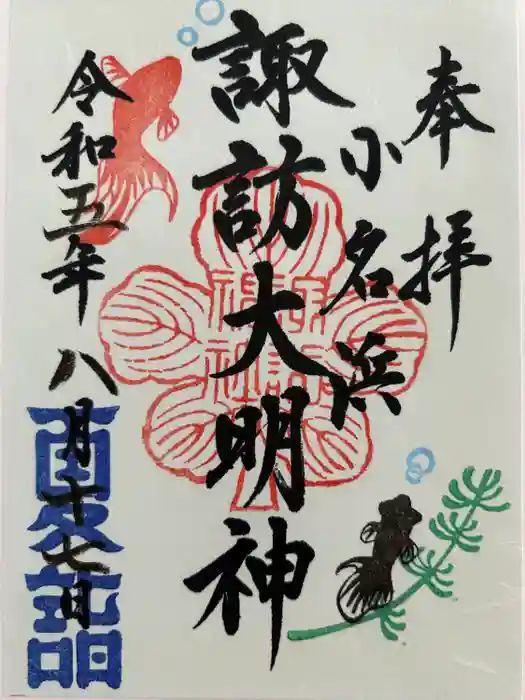 奉拝
小名浜
諏訪大明神
令和五年八月十七日
諏訪神社